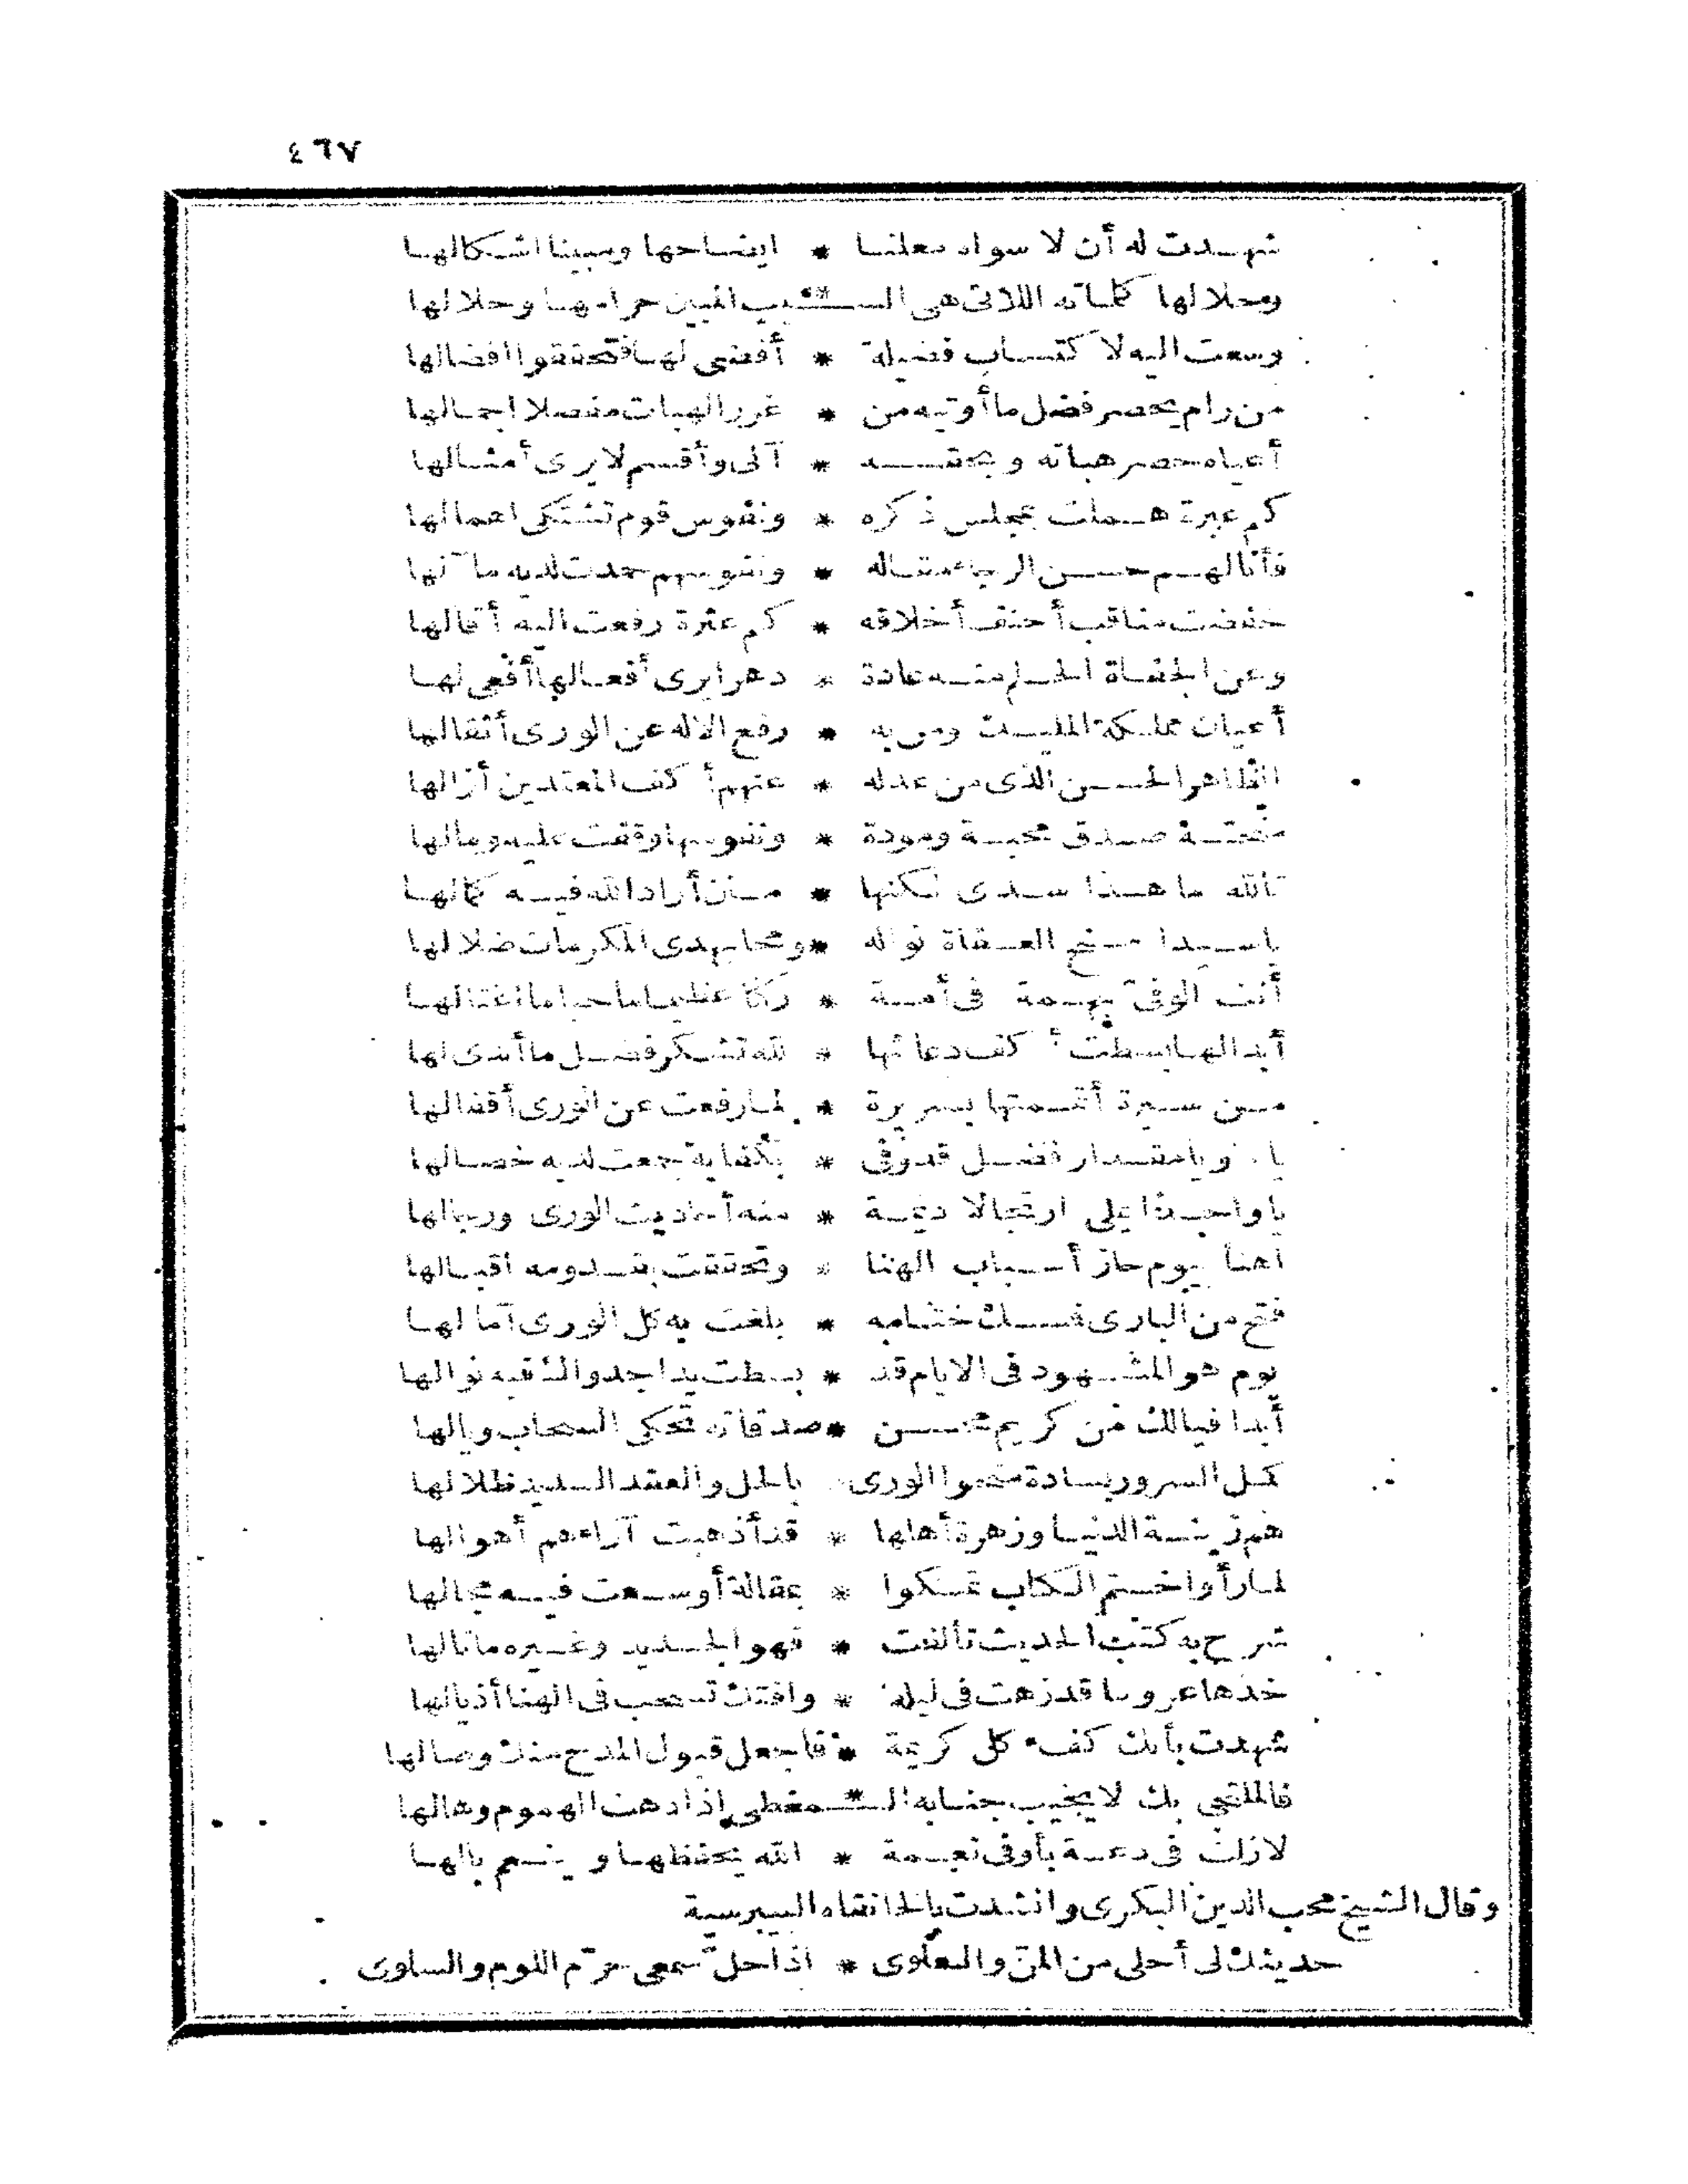 ٤٦٧
شهدت له أن لا سواه معلنا * ايضاحها ومبينا اشكالها
ومحلالها كلماته اللاتى هى الـ * ـسبب المبين حرامها وحلالها
وسعت اليه لا كتساب فضيلة * أفضى لها فتحققوا افضالها
من رام يحصر فضل ما أوتيه من * غرر الهبات مفصلا اجمالها
أعياه حصر هباته وبحقه * آلى وأقسم لا يرى أمثالها
كم عبرة هملت بمجلس ذكره * ونفوس قوم تشتكى اعمالها
فأنالهم حسن الرجاء مقاله * ونفوسهم حمدت لديه مآلها
خفضت مناقب أحنف أخلاقه * كم عثرة رفعت اليه أقالها
وعن الجفاة الحلم منه عادة * دهرا يرى أفعالها أفعى لها
أعيان مملكة المليك ومن به * رفع الاله عن الورى أثقالها
الظاهر الحسن الذى من عدله * عنهم أ كف المعتدين أزالها
منحته صدق محبة ومودة * ونفوسها وقفت عليه ومالها
تالله ما هذا سدى لكنها * منن أراد الله فيه كمالها
يا سيدا منح العفاة نواله * ومحا بهدى المكرمات ضلالها
أنت الوفى بهمة فى أمة * ركنا عظيما ما حيا ما اغتالها
أبدا لها بسطت أ كف دعائها * لله تشكر فضل ما أسدى لها
من سيرة أتممتها بسريرة * لما رفعت عن الورى أقفالها
ومقدار فضل قد وفى * بكفاية جمعت لديه خصالها
يا واحدا على ارتجالا ديمة * منه أحاديث الورى ورجالها
اهنأ بيوم حاز أسباب الهنا * وتحققت بقدومه اقبالها
فتح من البارى فمسك ختامه * بلغت به كل الورى آمالها
يوم هو المشهود فى الايام قد * بسطت يدا جدواك فيه نوالها
أبدا فيالك من كريم محسن * صدقاته تحكى السحاب وبالها
كمل السرور بسادة منحوا الورى * بالحل والعقد السديد ظلالها
هم زينة الدنيا وزهرة أهلها * قد أذهبت آراءهم أهوالها
لما رأوا ختم الكتاب تمسكوا * بمقالة أوسعت فيه مجالها
شرح به كتب الحديث تألفت * فهو الجديد وغيره ما نالها
خذها عروسا قد زهت فى ليلة * وافتك تسحب فى الهنا أذيالها
شهدت بأنك كفء كل كريمة * فاجعل قبول المدح منك وصالها
فالملتجى بك لا يخيب جنابه الـ * ـمغطى اذا دهت الهموم وهالها
لازلت فى دعة بأوفى نعمة * الله يحفظها وينعم بالها
وقال الشيخ محب الدين البكرى وانشدت بالخانقاه البيبرسية
حديثك لى أحلى من المنّ والسلوى * اذا حل سمعى حرّم اللوم والسلوى